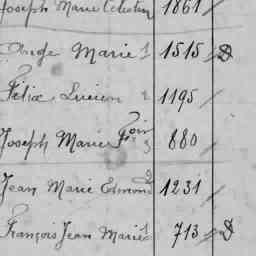 Joseph Marie Celestin 1861
Ange Marie 1 1515
Félix Lucien 2 1195
Joseph Marie Fois 3 880
Jean Marie Edmond 2 1231
François Jean Marie 1 713